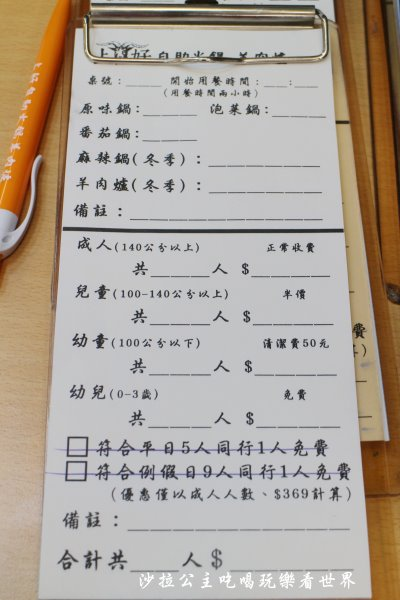 上好自助火鍋、羊肉爐
桌號：______ 開始用餐時間：___：___
(用餐時間兩小時)
原味鍋：______ 泡菜鍋：______
番茄鍋：______
麻辣鍋(冬季)：____________
羊肉爐(冬季)：____________
備註：____________________
成人(140公分以上) 正常收費
共______人 $________
兒童(100-140公分以上) 半價
共______人 $________
幼童(100公分以下) 清潔費50元
共______人 $________
幼兒(0-3歲) 免費
共______人 $________
□ 符合平日5人同行1人免費
□ 符合例假日9人同行1人免費
(優惠僅以成人人數、$369計算)
備註：____________________
合計共____人 $____________
沙拉公主吃喝玩樂看世界